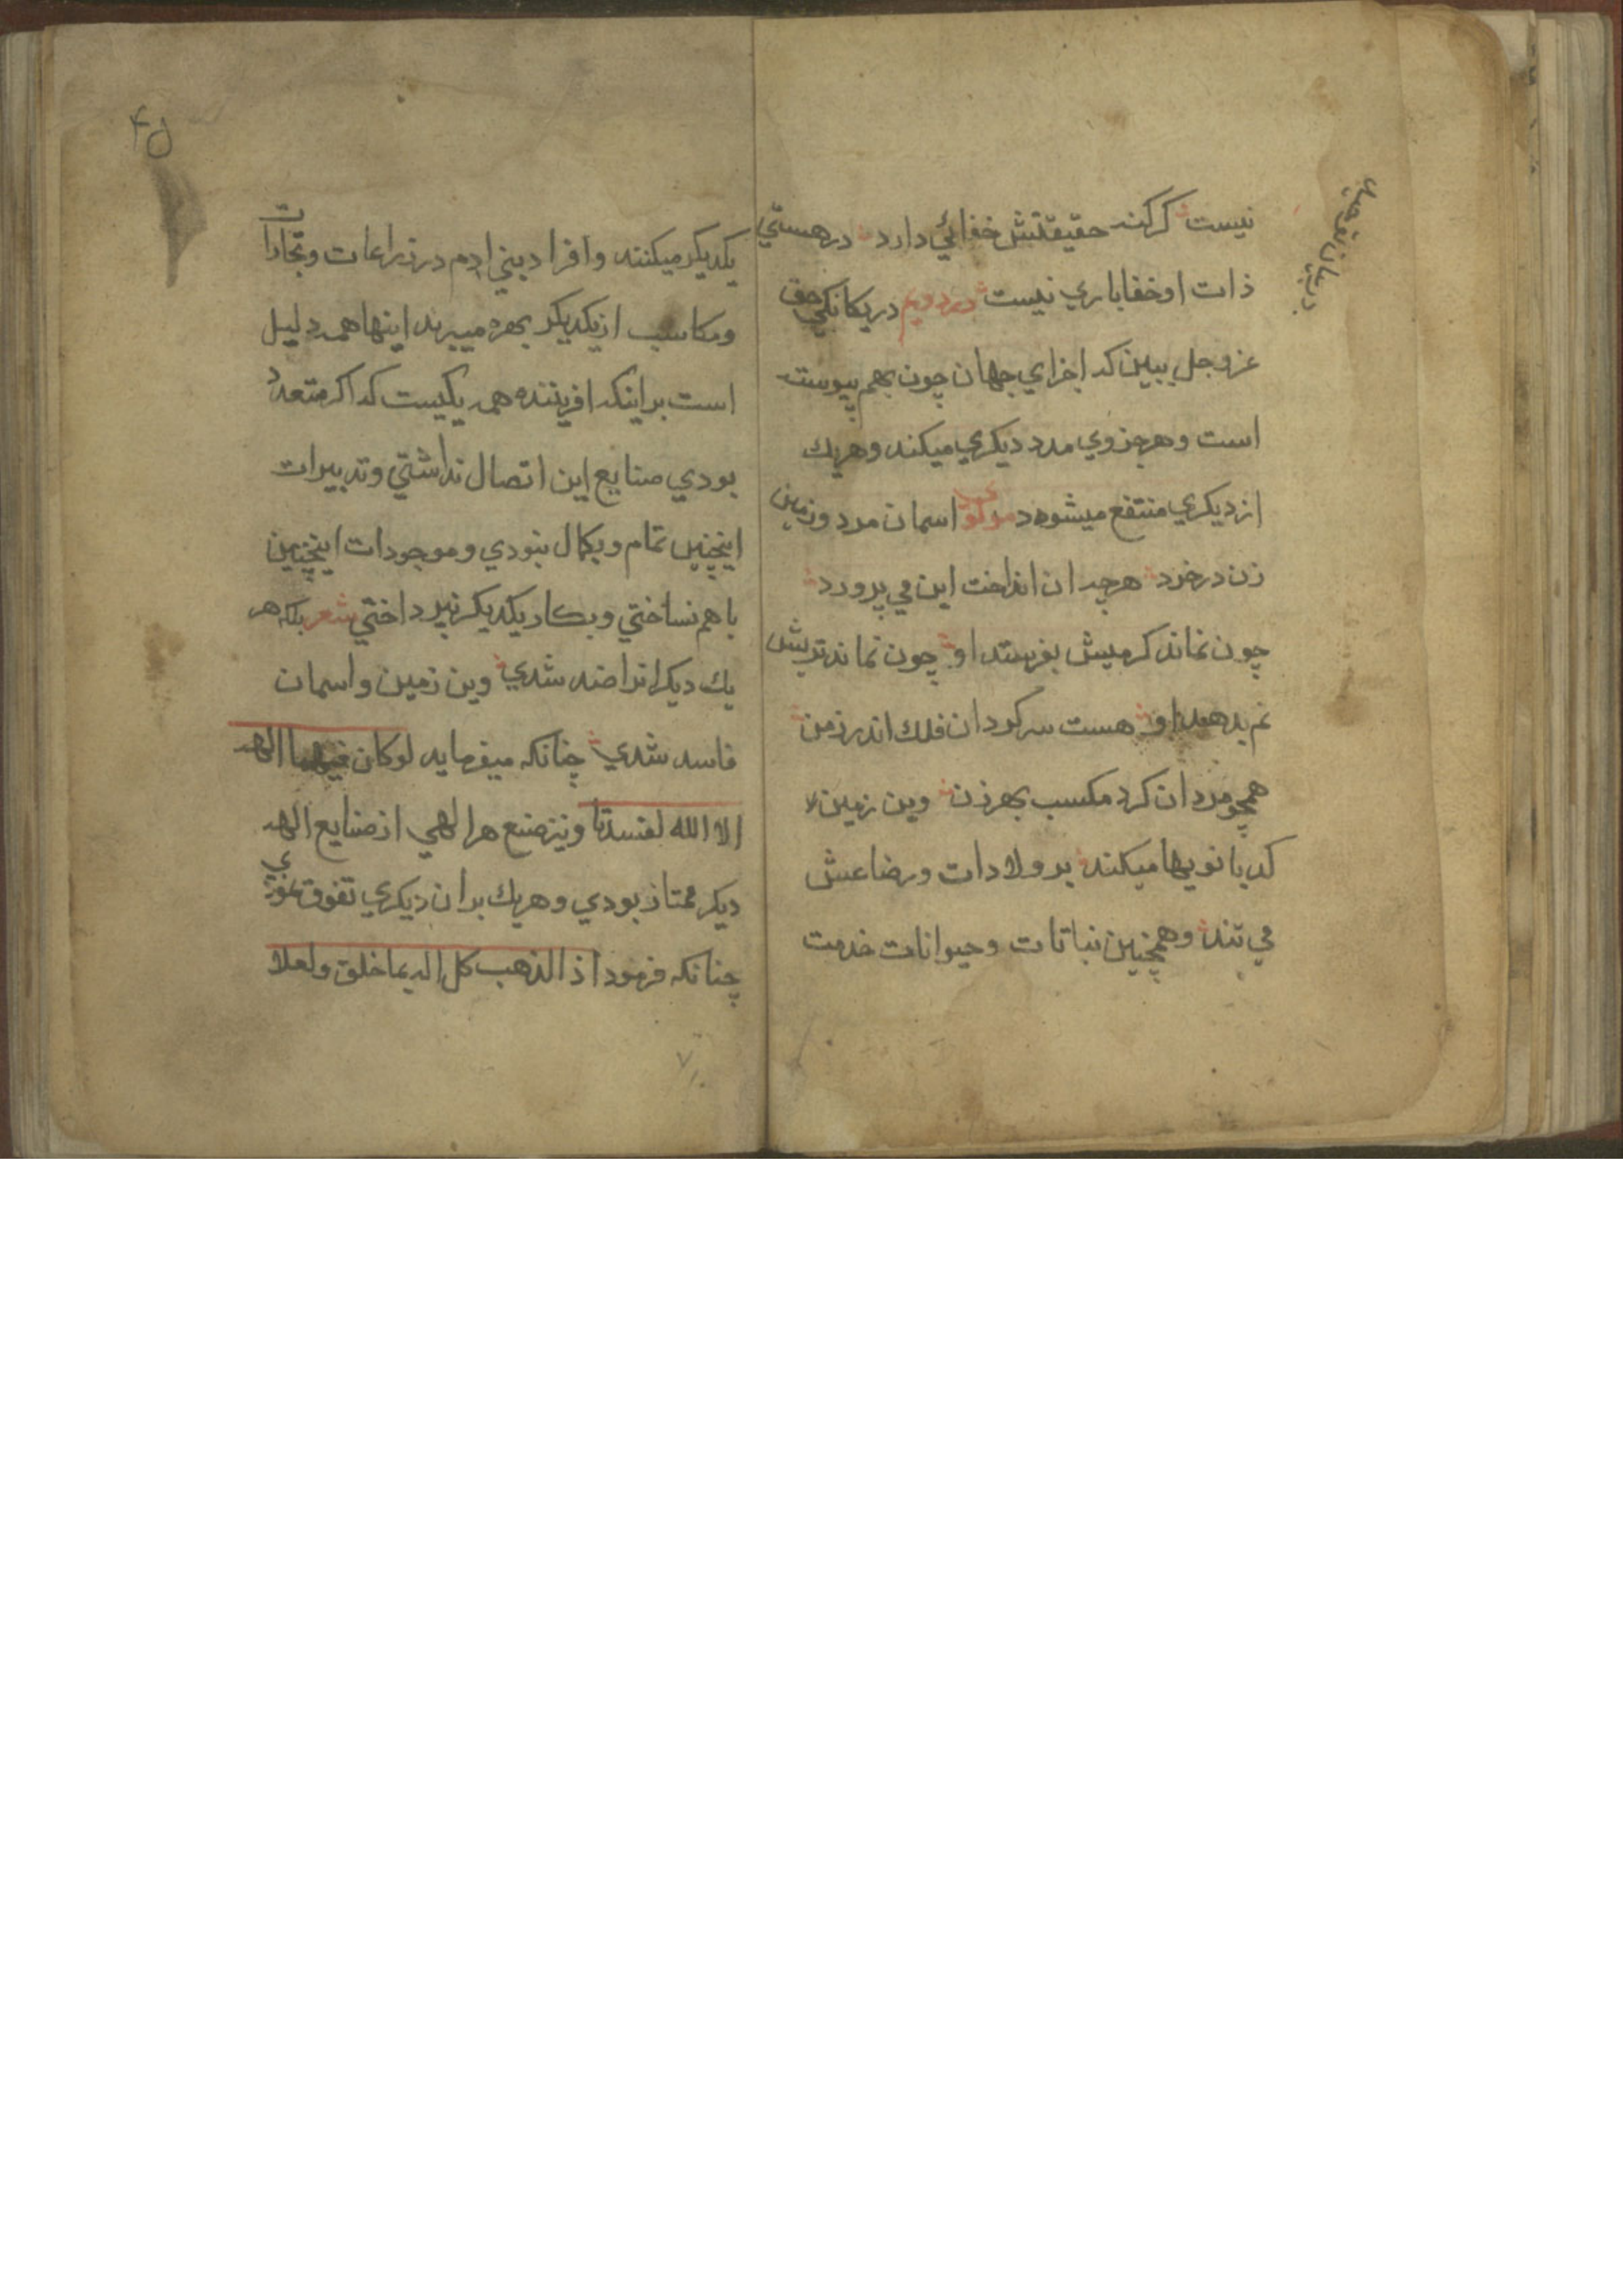 نیست کر کنه حقیقتش خفائي دارد در هستي
ذات او خفا باري نیست در دویم در یکانکي حق
عز و جل ببین که اجزاي جهان چون بهم پیوسته
است و هر جزوي مدد دیکري میکند و هر یك
از دیکري منتفع میشود مولوي اسمان مرد و زمین
زن در خرد هرچه ان انداخت این مي پرورد
چون نماند کرمیش بفرستد او چون نماند تریش
نم بدهد او هست سرکردان فلك اندر زمن
همچو مردان کرد مکسب بهر زن وین زمین
کدبانویها میکند بر ولادات و رضاعش
مي تند و همچنین نباتات و حیوانات خدمت
در بیان توحید
۴۵
یکدیکر میکنند و افراد بني ادم در زراعات و تجارات
و مکاسب از یکدیکر بهره میبرند اینها همه دلیل
است بر اینکه افریننده همه یکیست که اکر متعدد
بودي صنایع این اتصال نداشتي و تدبیرات
اینچنین تمام و بکمال نبودي و موجودات اینچنین
باهم نساختي و بکار یکدیکر نپرداختي شعر بلکه هر
یك دیکر را ضد شدي وین زمین و اسمان
فاسد شدي چنانکه میفرماید لو کان فیهما الهه
الا الله لفسدتا و نیز صنع هر الهي از صنایع اله
دیکر ممتاز بودي و هر یك بر ان دیکري تفوق نمودي
چنانکه فرمود اذا لذهب کل اله بما خلق و لعلا